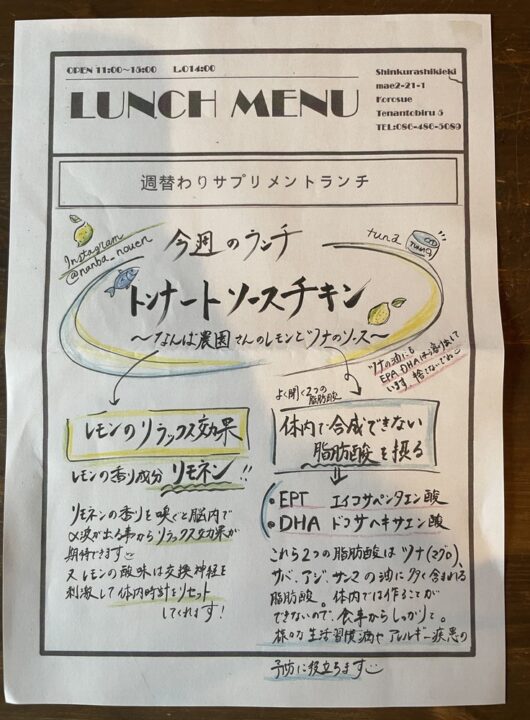 OPEN 11:00~15:00 L.O14:00
LUNCH MENU
Shinkurashikieki
mae2-21-1
Korosue
Tenantobiru 5
TEL:086-486-5089
週替わりサプリメントランチ
Instagram
@nanba_nouen
今週のランチ
tuna
TUNA
トンナートソースチキン
～なんば農園さんのレモンとツナのソース～
ツナの油にも
EPA、DHAは
います。捨てないでね
レモンのリラックス効果
レモンの香り成分 リモネン!!
リモネンの香りを嗅ぐと脳内で
α波が出る事からリラックス効果が
期待できます
又レモンの酸味は交換神経を
刺激して体内時計をリセット
してくれます!
よく聞く2つの
脂肪酸
体内で合成できない
脂肪酸を摂る
・EPT エイコサペンタエン酸
・DHA ドコサヘキサエン酸
これら2つの脂肪酸はツナ(マグロ)、
サバ、アジ、サンマの油に多く含まれる
脂肪酸。体内では作ることが
できないので、食事からしっかりと。
様々な生活習慣病やアレルギー疾患の
予防に役立ちます